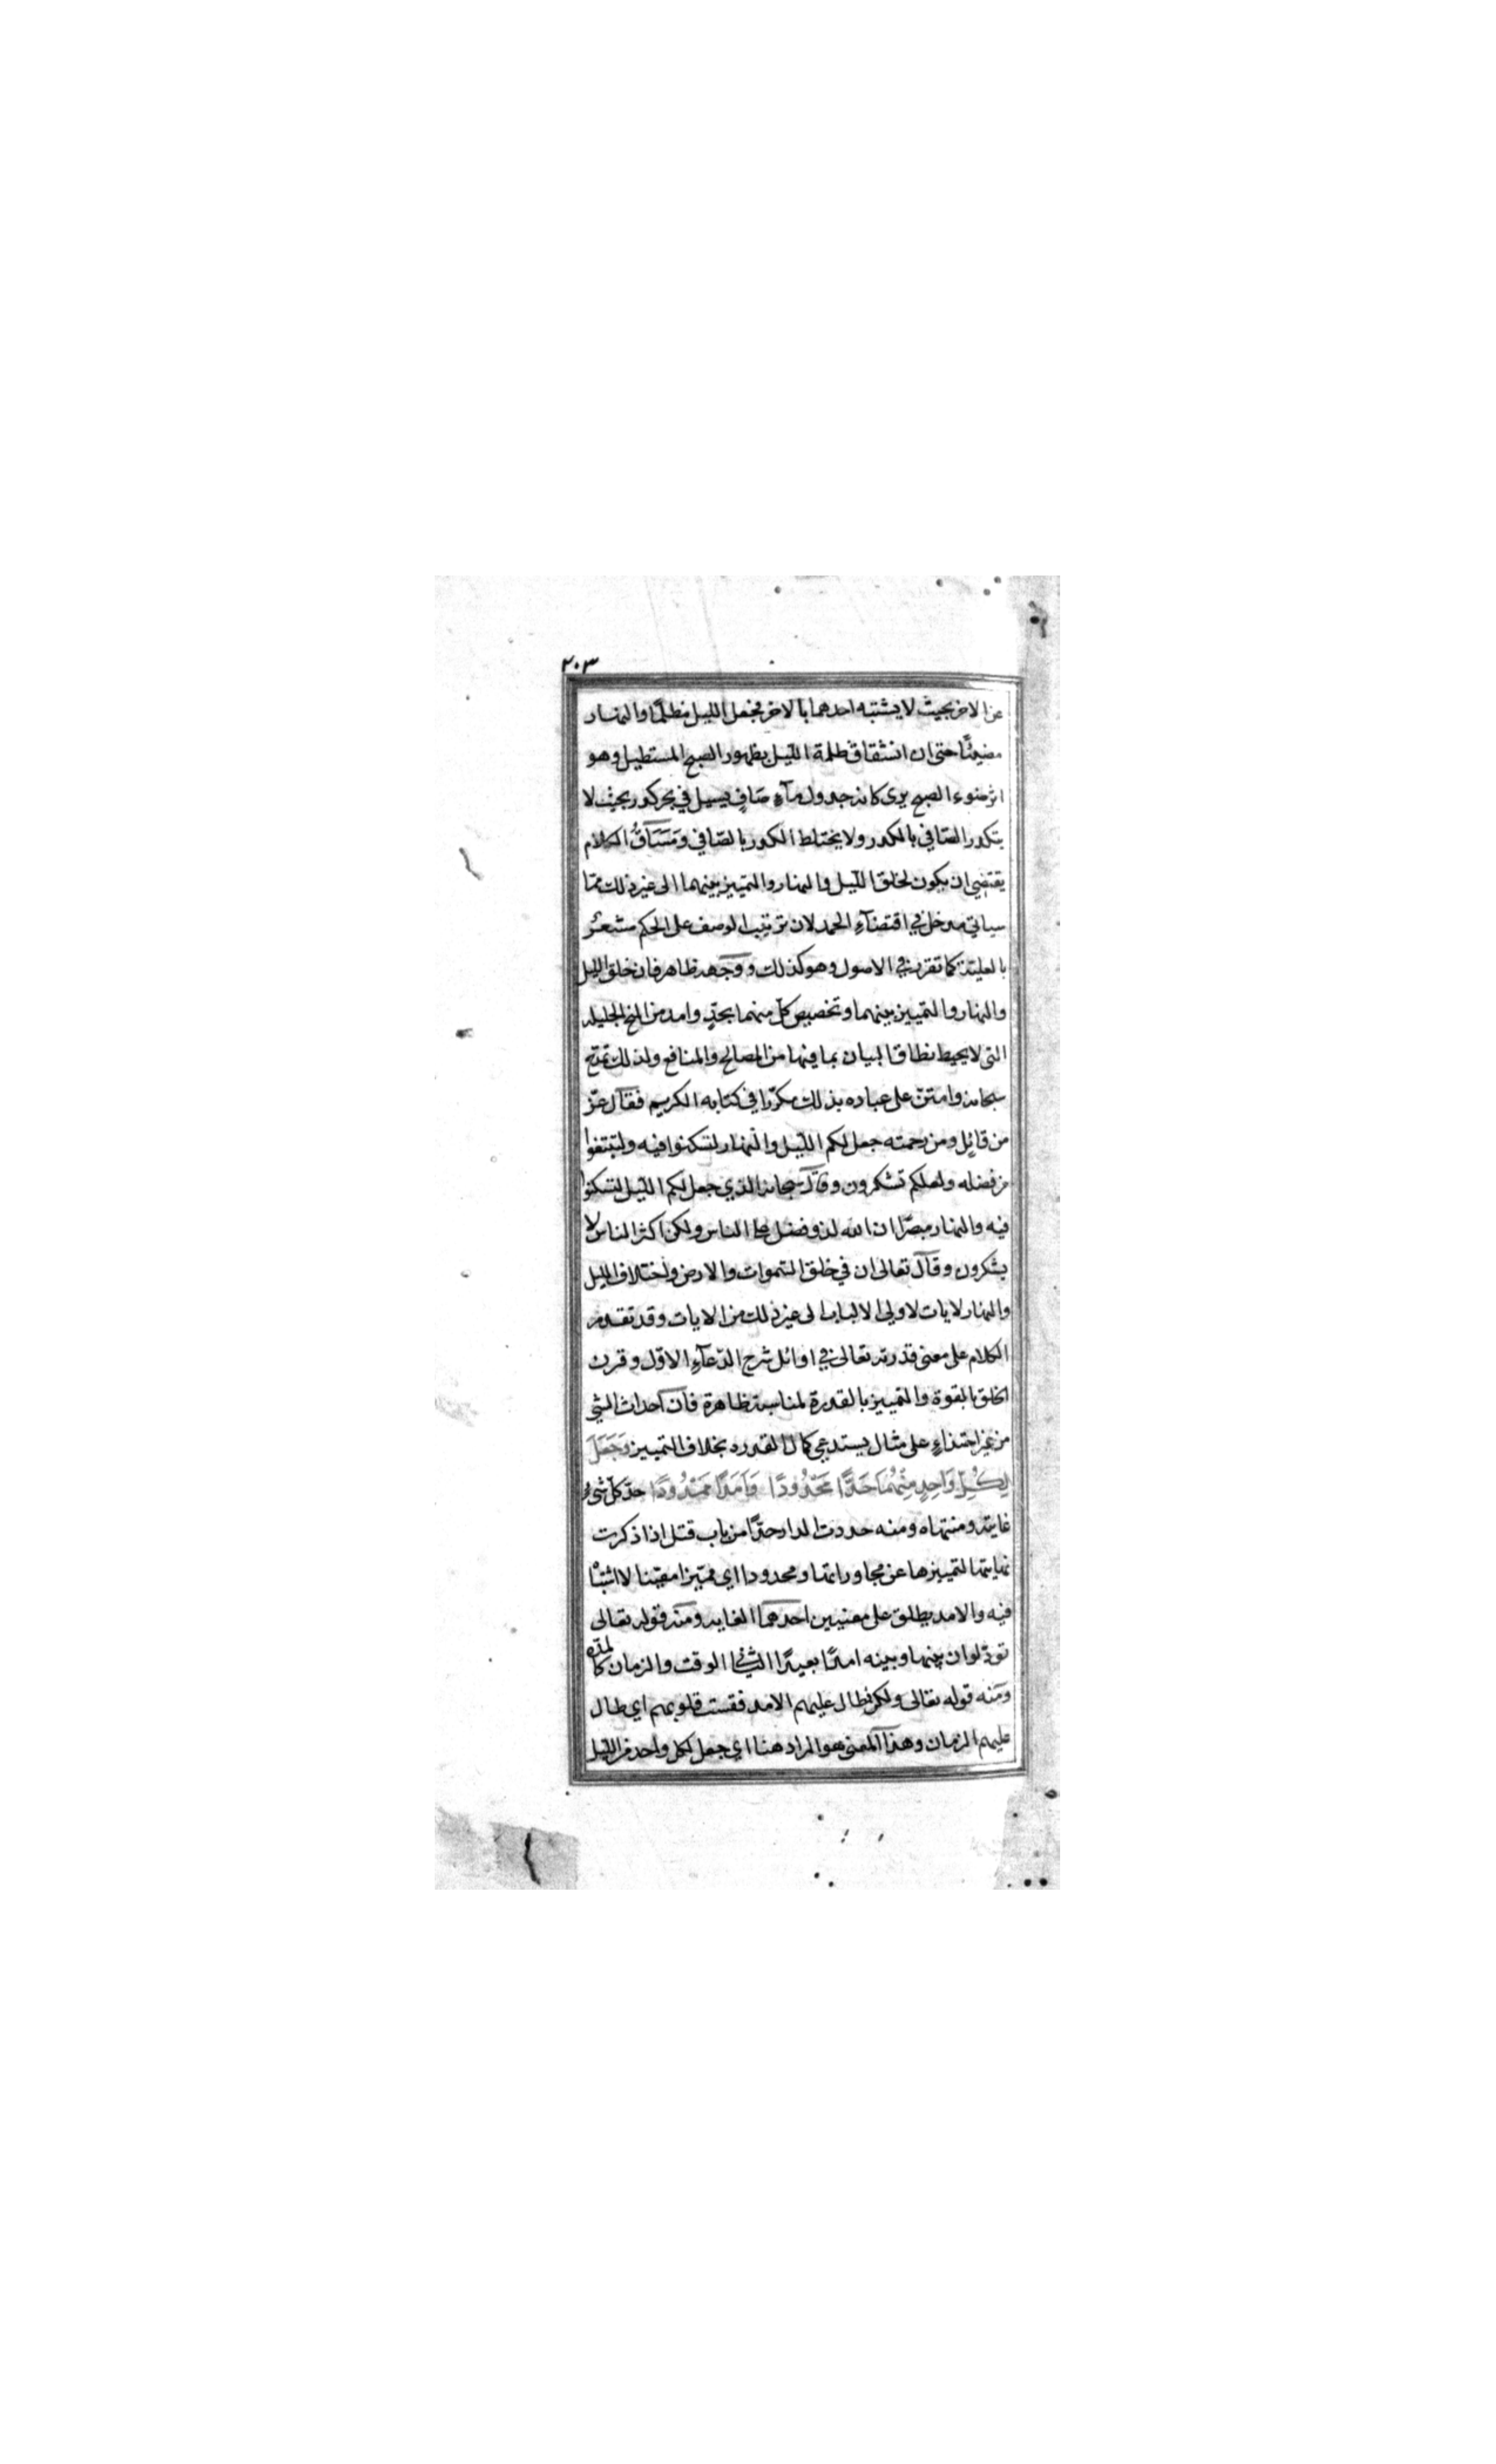 ٢٠٣
عن الاخر بحيث لا يشتبه احدهما بالاخر فجعل الليل مظلمًا والنهار
مضيئًا حتى ان انشقاق ظلمة الليل بظهور الصبح المستطيل وهو
اثر ضوء الصبح يرى كانه جدول مآءٍ صافٍ يسيل في بحر كدر بحيث لا
يتكدر الصافي بالكدر ولا يختلط الكدر بالصافي ومساق الكلام
يقتضي ان يكون لخلق الليل والنهار والتمييز بينهما الى غير ذلك ممّا
سياتي مدخل في اقتضآءِ الحمد لان ترتيب الوصف على الحكم مشعر
بالعلية كما تقرر في الاصول وهو كذلك ووجهه ظاهر فان خلق الليل
والنهار والتمييز بينهما وتخصيص كل منهما بحدٍ وامد من المنح الجليله
التى لا يحيط نطاق البيان بما فيها من المصالح والمنافع ولذلك تمدح
سبحانه وامتن على عباده بذلك مكررا في كتابه الكريم فقال عزّ
من قائل ومن رحمته جعل لكم الليل والنهار لتسكنوا فيه ولتبتغوا
من فضله ولعلكم تشكرون وقال سبحانه الذي جعل لكم الليل لتسكنوا
فيه والنهار مبصرًا ان الله لذو فضل على الناس ولكن اكثر الناس لا
يشكرون وقال تعالى ان في خلق السموات والارض واختلاف الليل
والنهار لايات لاولي الالباب الى غير ذلك من الايات وقد تقدم
الكلام على معنى قدرته تعالى في اوائل شرح الدّعآءِ الاوّل وقرن
الخلق بالقوة والتمييز بالقدرة لمناسبة ظاهرة فان احداث الشي
من غير احتذاءٍ على مثال يستدعي كمال القدره بخلاف التمييز وَجَعَلَ
لِكُلِّ وَاحِدٍ مِنْهُمَا حَدًّا مَحْدُودًا وَاَمَدًا مَمْدُودًا حدّ كل شى
غايته ومنتهاه ومنه حددت الدار حدًّا من باب قتل اذا ذكرت
نهايتها لتمييزها عن مجاوراتها ومحدودا اي مميّزا معيّنا لا اشتباه
فيه والامد يطلق على معنيين احدهما الغايه ومنه قوله تعالى
تودّ لو ان بينها وبينه امدًا بعيدًا الثاني الوقت والزمان كالمدّه
ومنه قوله تعالى ولكن طال عليهم الامد فقست قلوبهم اي طال
عليهم الزمان وهذا المعنى هو المراد هنا اي جعل لكل واحد من الليل